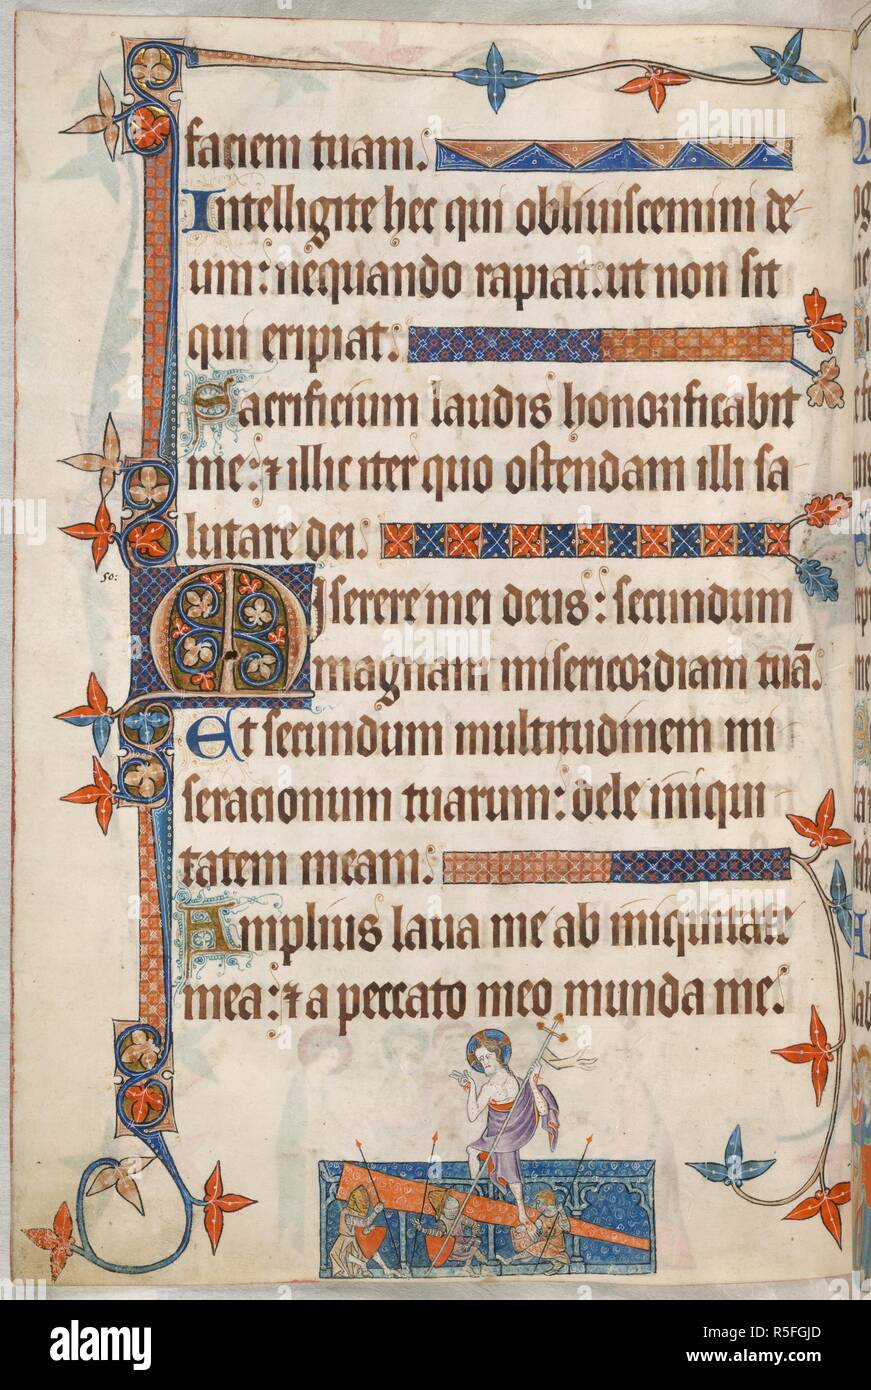 faciem tuam.
Intelligite hec qui obliuiscemini de
um: nequando rapiat. ut non sit
qui eripiat.
Sacrificium laudis honorificabit
me: ⁊ illic iter quo ostendam illi sa
lutare dei.
50:
Miserere mei deus: secundum
magnam misericordiam tuā.
Et secundum multitudinem mi
seracionum tuarum: dele iniqui
tatem meam.
Amplius laua me ab iniquitate
mea: ⁊ a peccato meo munda me.
alamy
Image ID: R5FGJD
www.alamy.com